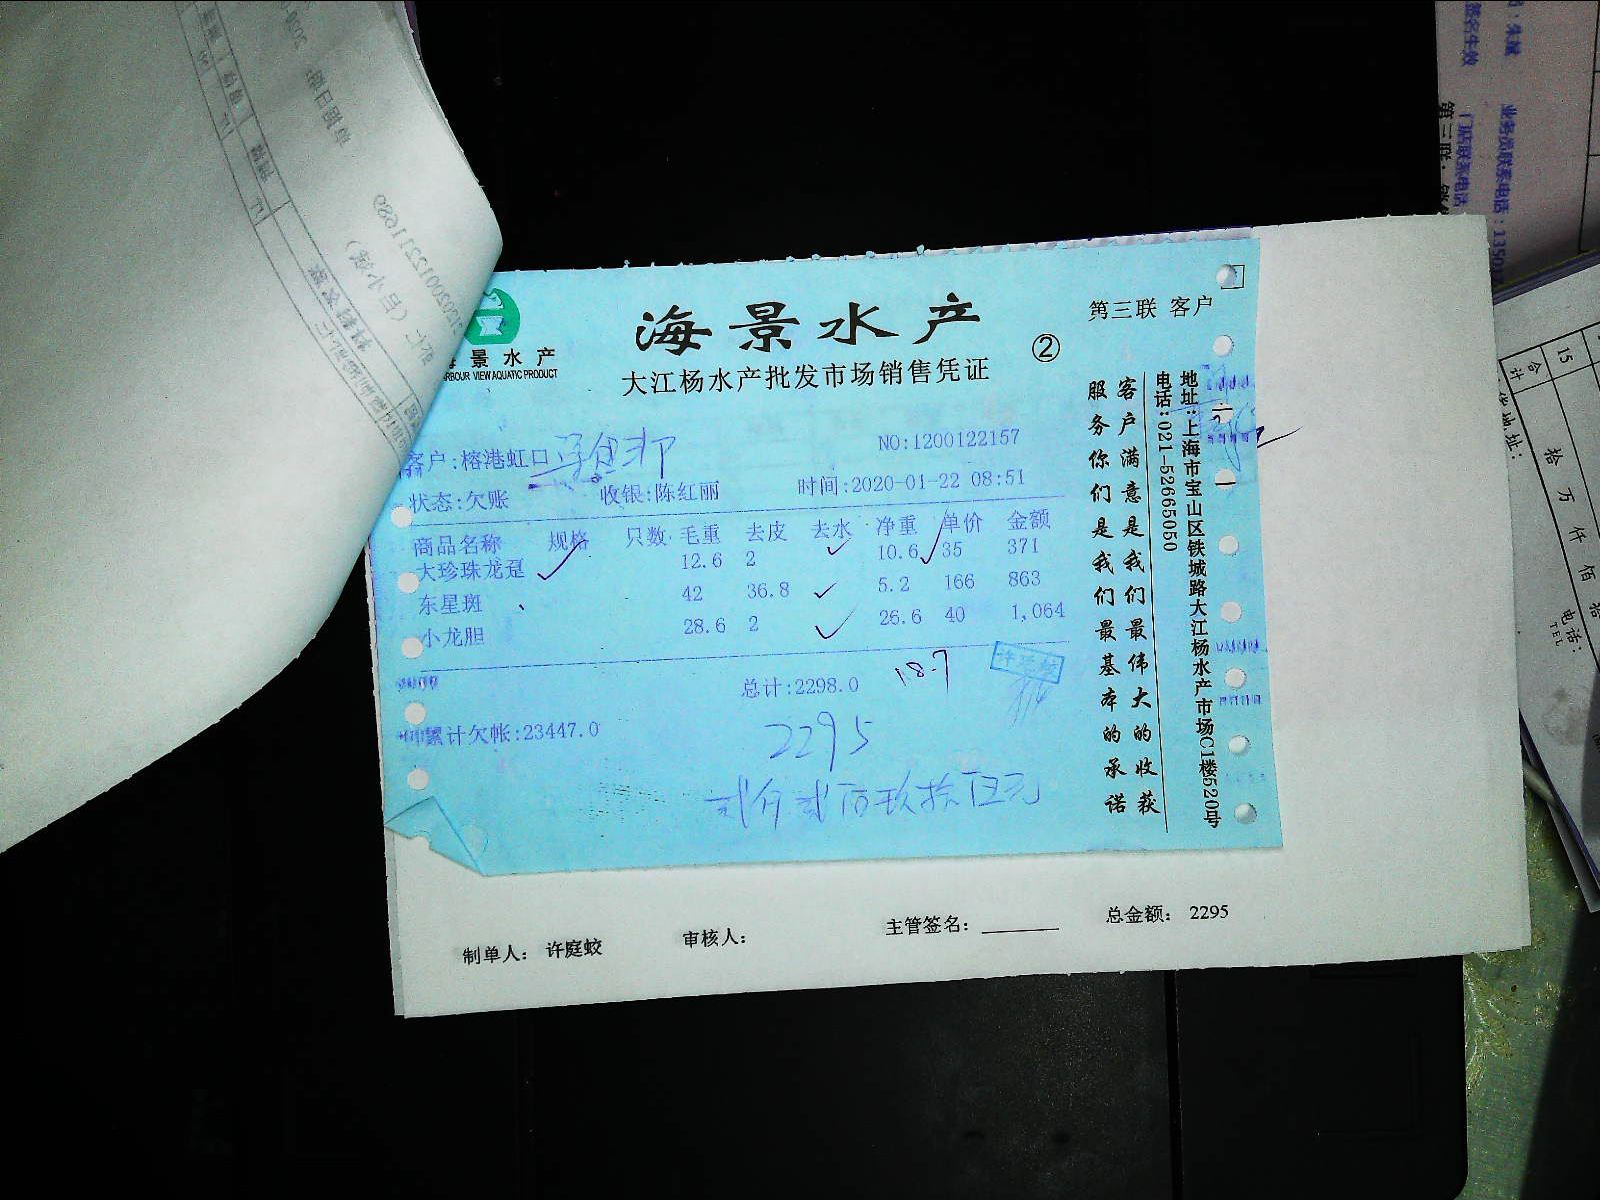 海景水产
大江杨水产批发市场销售凭证
②
第三联 客户
景水产
RBOUR VIEW AQUATIC PRODUCT
客户:榕港虹口
NO:1200122157
状态:欠账 收银:陈红丽 时间:2020-01-22 08:51
商品名称 规格 只数 毛重 去皮 去水 净重 单价 金额
大珍珠龙趸 12.6 2 10.6 35 371
东星斑 42 36.8 5.2 166 863
小龙胆 28.6 2 26.6 40 1,064
总计:2298.0
18.7
累计欠帐:23447.0
2295
贰仟贰佰玖拾伍元
客户满意是我们最伟大的收获
服务你们是我们最基本的承诺
地址:上海市宝山区铁城路大江杨水产市场C1楼520号
电话:021-52665050
制单人: 许庭蛟 审核人: 主管签名: 总金额: 2295
业务员联系电话:1350
门店联系电话
签名生效
第三联:
15
合计
拾 万 仟 佰 拾
地址:
电话:
TEL